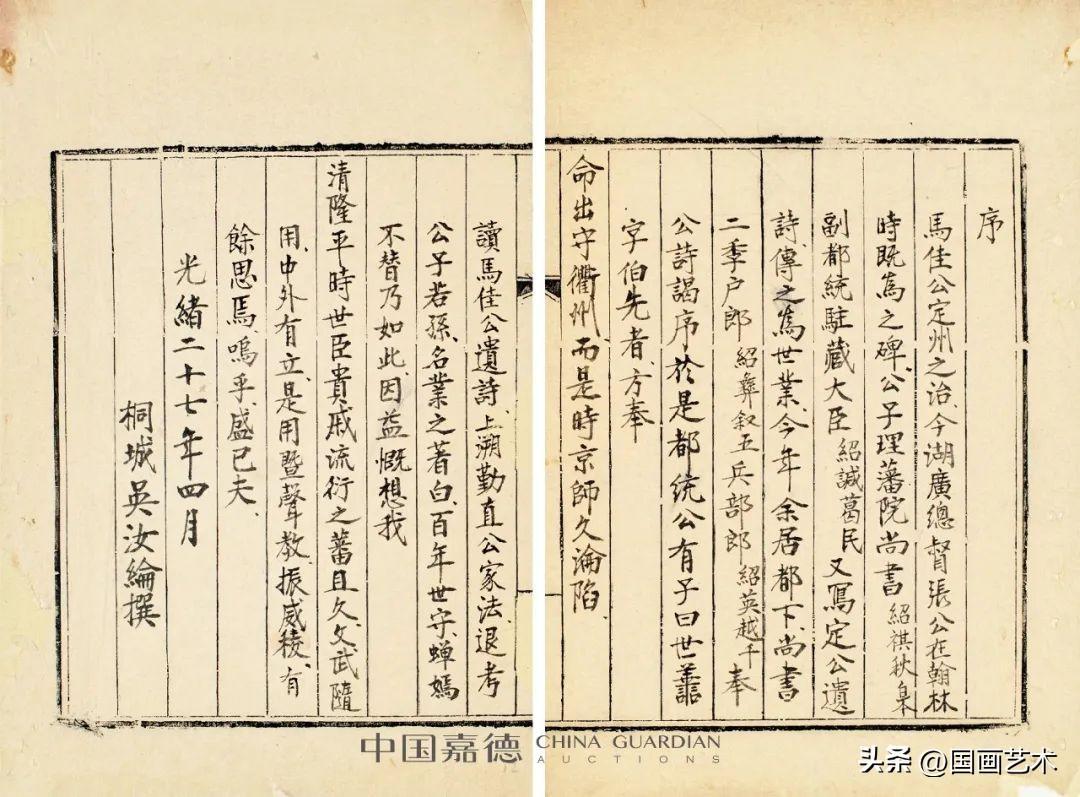 序
馬佳公定州之治、今湖廣總督張公在翰林
時既為之碑、公子理藩院尚書 紹祺秋皋
副都統駐藏大臣 紹諴葛民 又寫定公遺
詩、傳之為世業、今年余居都下、尚書
二季戶郎 紹彝叙五 兵部郎 紹英越千 奉
公詩謁序於是都統公有子曰世善
字伯先者、方奉
命出守衢州、而是時京師久淪陷、
讀馬佳公遺詩、上溯勤直公家法、退考
公子若孫、名業之著白、百年世守、蟬嫣
不替乃如此、因益慨想我
清隆平時世臣貴戚流衍之蕃且久、文武隨
用、中外有立、是用暨聲教、振威稜、有
餘思焉、嗚乎、盛已夫、
光緒二十七年四月
桐城吳汝綸撰
中国嘉德 CHINA GUARDIAN
AUCTIONS
头条 @国画艺术